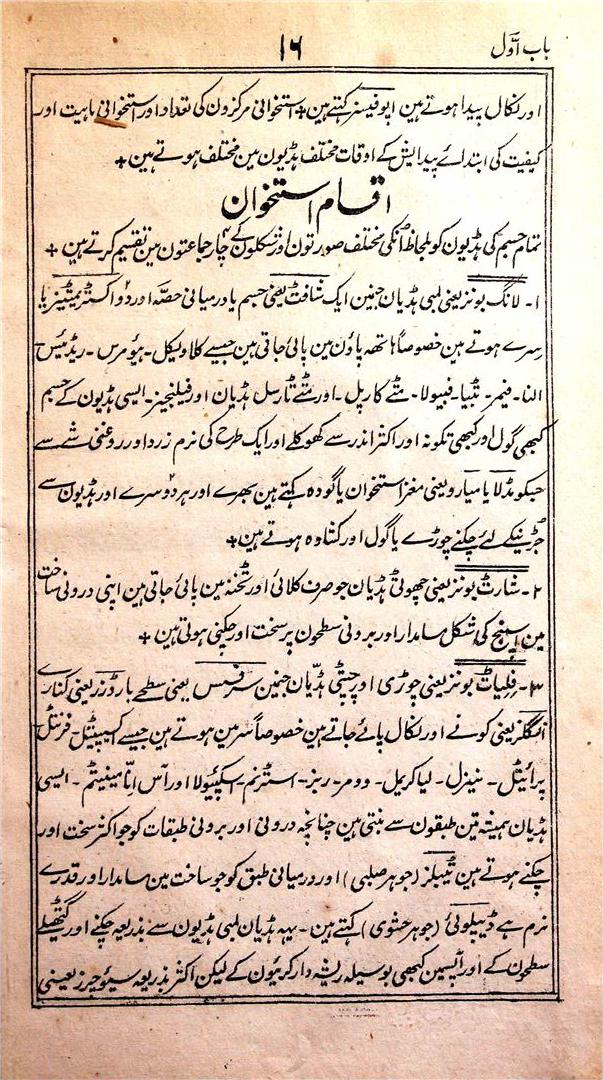 باب اوّل
۱۶
اور نکال پیدا ہوتے ہین اپوفیسز کہتے ہین + استخوانی مرکزون کی تعداد اور استخوانی ماہیت اور
کیفیت کی ابتداے پیدایش کے اوقات مختلف ہڈیون مین مختلف ہوتے ہین +
اقسام استخوان
تمام جسم کی ہڈیون کو بلحاظ اُنکی مختلف صورتون اور شکلون کے چار جماعتون مین تقسیم کرتے ہین +
۱- لانگ بونز یعنی لمبی ہڈیان جنین ایک شافٹ یعنی جسم یا درمیانی حصّہ اور دو اکسٹریمیٹیز یا
سرے ہوتے ہین خصوصاً ہاتھہ پاؤن مین پائی جاتی ہین جیسے کلاویکل - ہیومرس - ریڈیٔس
النا - فیمر - ٹبیا - فبیولا - مٹے کارپل - اور مٹے ٹارسل ہڈیان اور فیلنجیز - ایسی ہڈیون کے جسم
کبھی گول اور کبھی تکونہ اور اکثر اندر سے کھوکلے اور ایک طرح کی نرم زرد اور روغنی شے سے
جسکو مڈلا یا میارو یعنی مغز استخوان یا گودہ کہتے ہین بھرے اور ہر دو سرے اور ہڈیون سے
جڑنیکے لئے چکنے چوڑے یا گول اور کشادہ ہوتے ہین +
۲- شارٹ بونز یعنی چھوٹی ہڈیان جو صرف کلائی اور ٹخنہ مین پائی جاتی ہین اپنی درونی ساخت
مین اسپنج کی شکل مسامدار اور برونی سطحون پر سخت اور چکنی ہوتی ہین +
۳- فلیاٹ بونز یعنی چوڑی اور چپٹی ہڈیان جنین سرفیسس یعنی سطحے بارڈرز یعنی کنارے
انگلز یعنی کونے اور نکال پائے جاتے ہین خصوصاً سر مین ہوتے ہین جیسے اکسیپیٹل - فرنٹل
پرائیٹل - نیزل - لیاکریمل - وومر - ربز - اسٹرنم - اسکیپیولا اور آس انّامینیٹم - ایسی
ہڈیان ہمیشہ تین طبقون سے بنتی ہین چنانچہ درونی اور برونی طبقات کو جو اکثر سخت اور
چکنے ہوتے ہین ٹیبلز (جوہر صلبی) اور درمیانی طبق کو جو ساخت مین مسامدار اور قدرے
نرم ہے ڈیپلوئی (جوہر حشوی) کہتے ہین - یہہ ہڈیان لمبی ہڈیون سے بذریعہ چکنے اور گٹھیلے
سطحون کے اور آپسمین کبھی بوسیلہ ریشہ دار کریون کے لیکن اکثر بذریعہ سیوچرز یعنی